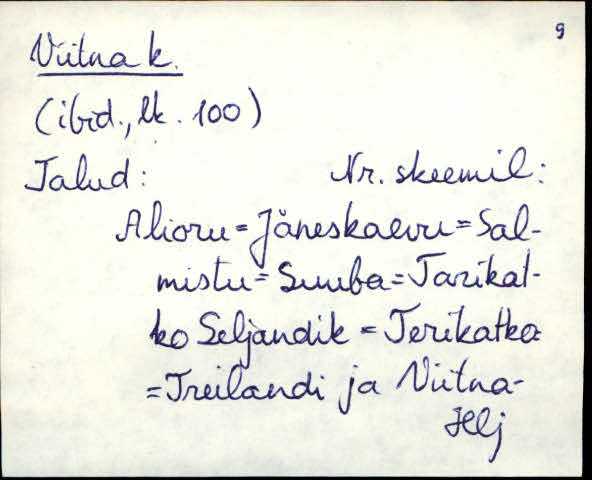 9
Viitna k.
(ibid., lk. 100)
Talud: Nr. skeemil:
Alioru = Jäneskaevu = Sal-
mistu = Suuba = Tarikat-
ko Seljandik = Terikatko
= Treilandi ja Viitna-
Helj